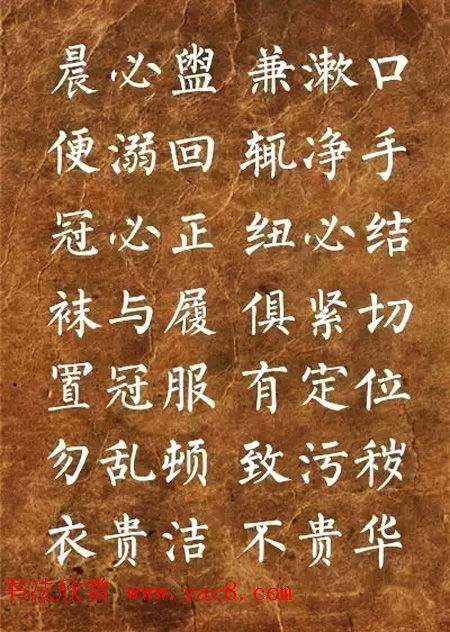 晨必盥 兼漱口
便溺回 辄净手
冠必正 纽必结
袜与履 俱紧切
置冠服 有定位
勿乱顿 致污秽
衣贵洁 不贵华
书法欣赏 www.yac8.com